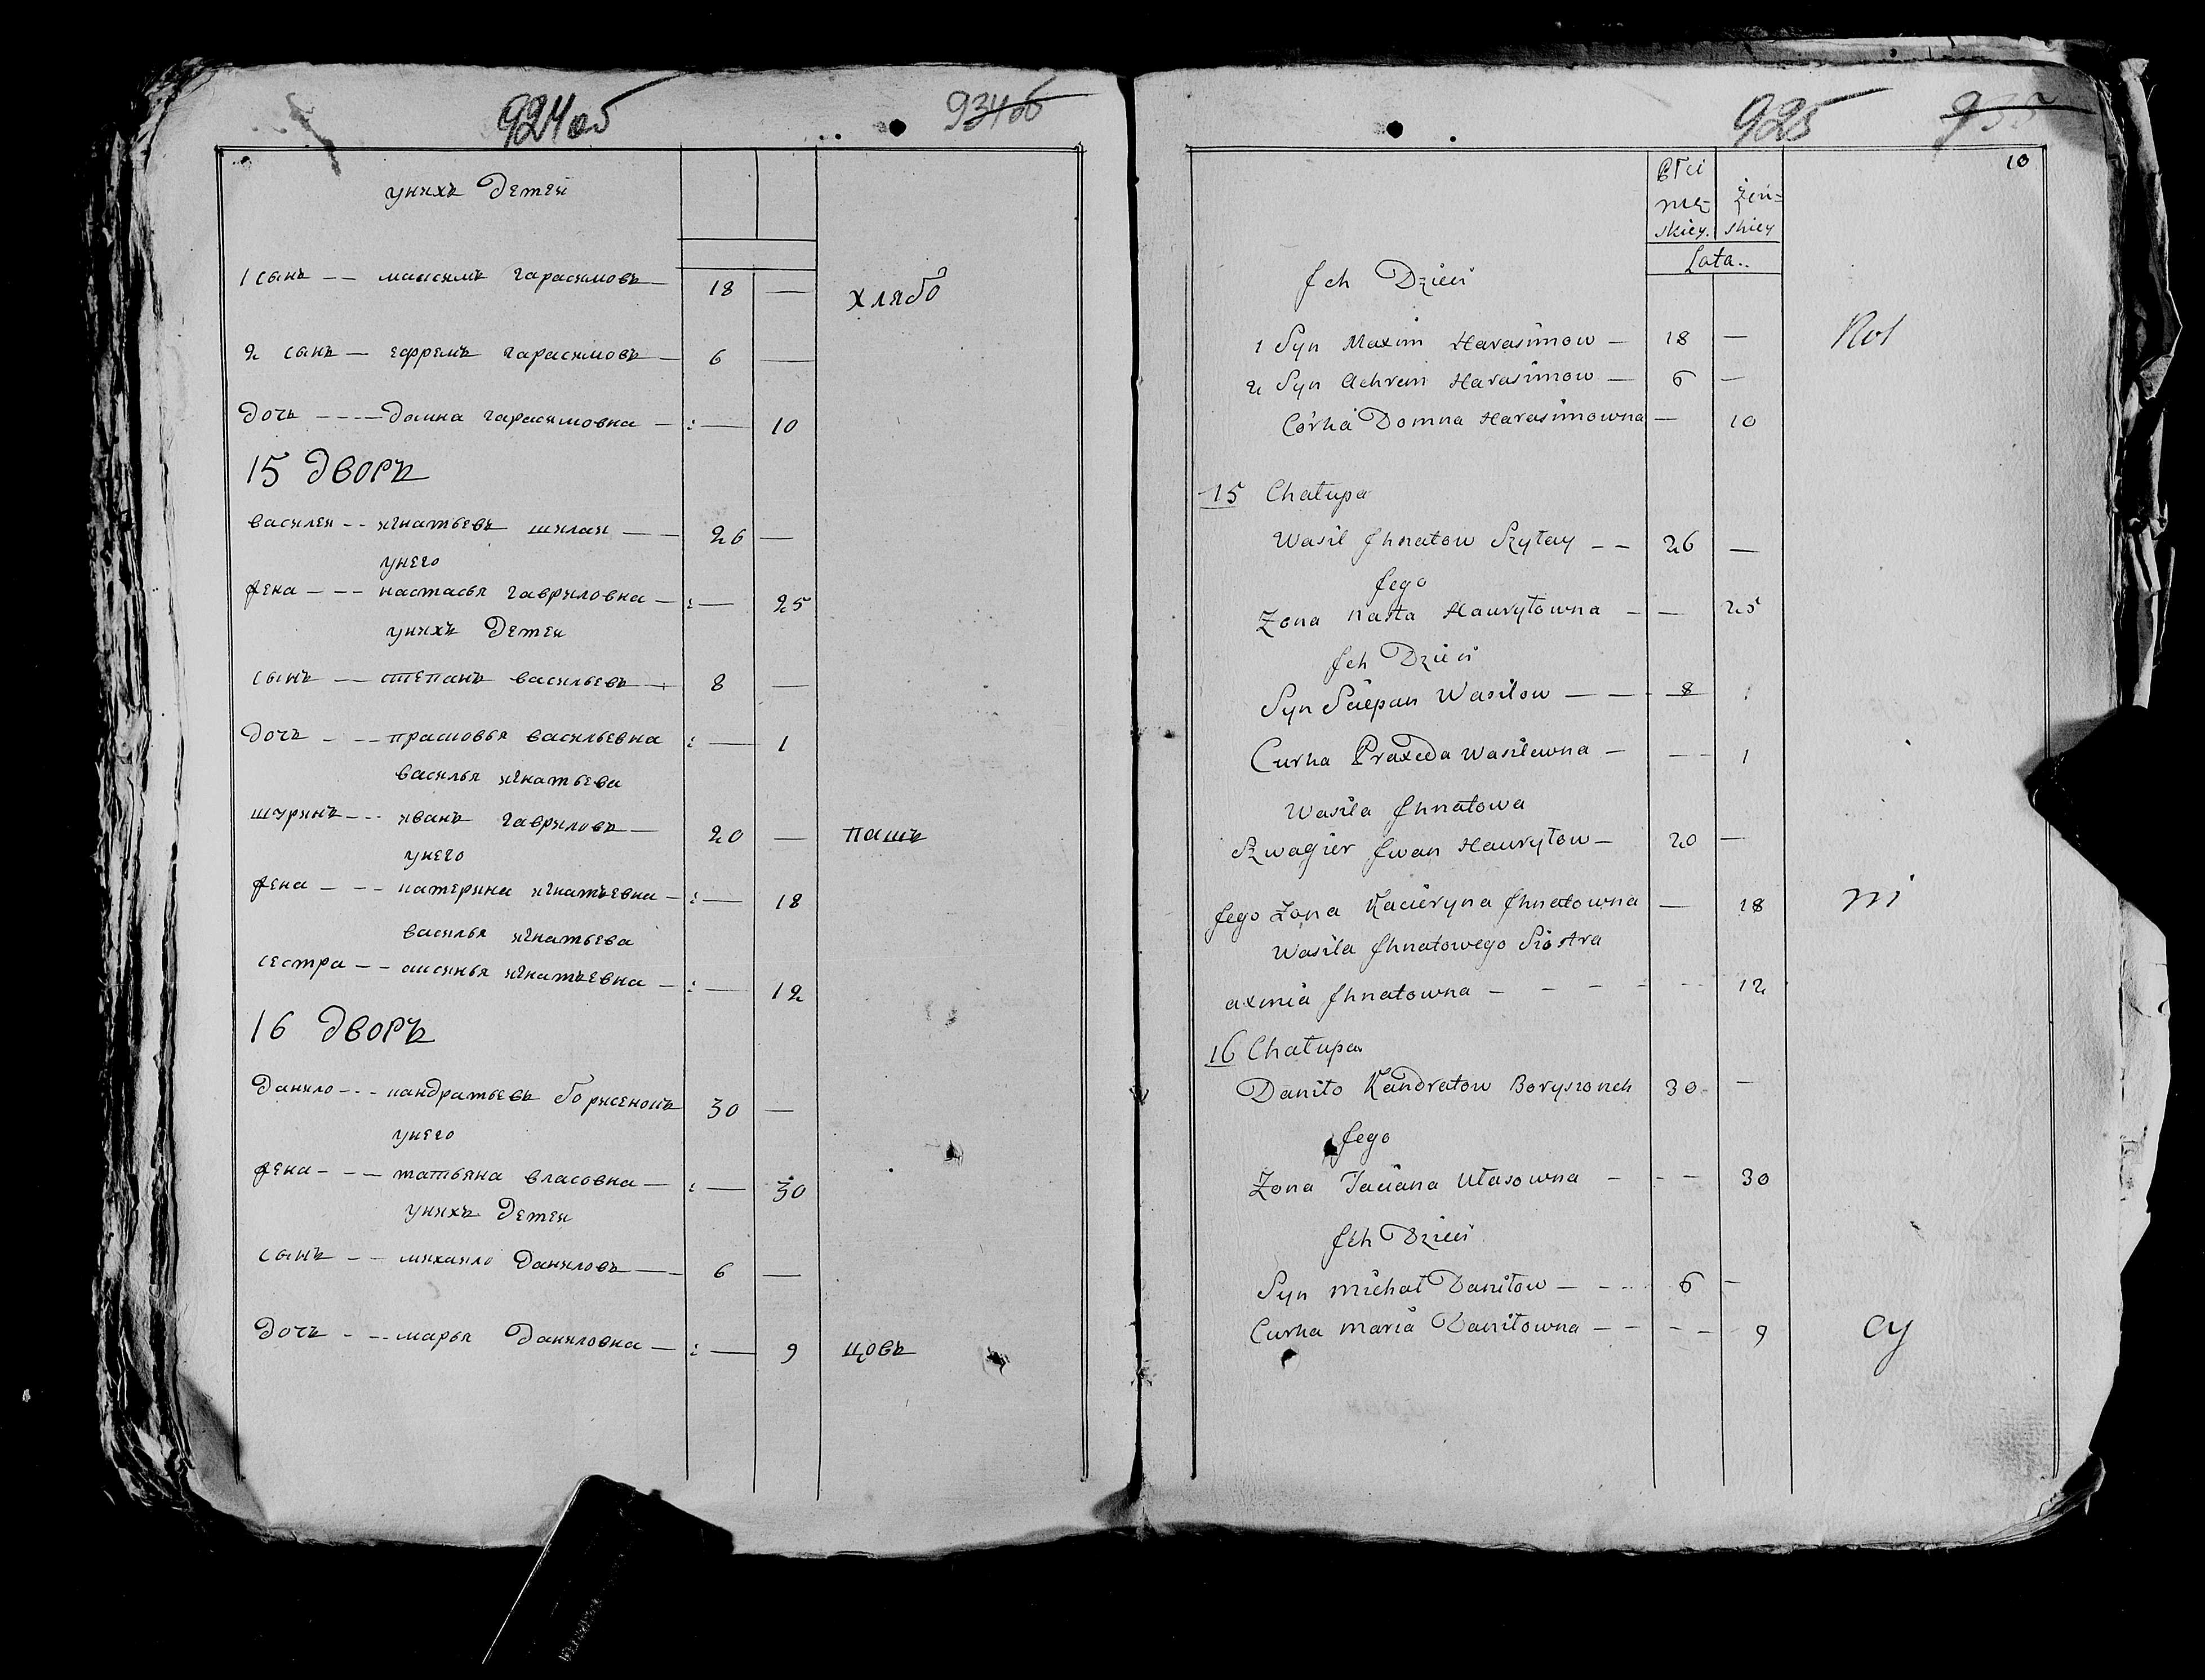 924об 934об
у них детей
1 сынъ -- максимъ гарасимовъ — 18 — хлябо
2 сынъ — ефремъ гарасимовъ — 6 —
дочь --- домна гарасимовна — : — 10
15 дворъ
василей -- игнатьевъ шилай -- 26 —
у него
жена --- настасья гавриловна — : — 25
у нихъ детей
сынъ -- степанъ васильевъ — 8 —
дочь --- прасковья васильевна : — 1
василья игнатьева
шуринъ --- иванъ гавриловъ — 20 — пашъ
у него
жена --- катерина игнатьевна — : — 18
василья игнатьева
сестра -- аксинья игнатьевна — : — 12
16 дворъ
данило --- кандратьевъ борисенокъ 30 —
у него
жена --- татьяна власовна — : — 30
у нихъ детей
сынъ -- михайло даниловъ — 6 —
дочь --- марья даниловна — : — 9 цовъ
925 935
10
Płci
męz żeń=
skiey. skiey
Lata..
Jch Dzieci
1 Syn Maxim Harasimow — 18 — Rol
2 Syn Achrem Harasimow — 6 —
Córka Domna Harasimowna — 10
15 Chałupa
Wasil Jhnatow Szyłay -- 26 —
Jego
Zona Nasta Hauryłowna - — 25
Jch Dzieci
Syn Sciepan Wasilow — — 8
Curka Praxeda Wasilewna — -- 1
Wasila Jhnatowa
Szwagier Jwan Hauryłow — 20 —
Jego Żona Kacieryna Jhnatowna — 18 ni
Wasila Jhnatowego Siostra
axinia Jhnatowna - - - - -- 12
16 Chałupa
Daniło Kandratow Borysionek 30 —
Jego
Zona Taciana Ułasowna - - - 30
Jch Dzieci
Syn Michał Daniłow — - -- 6 -
Curka Maria Daniłowna - - - - 9 cy